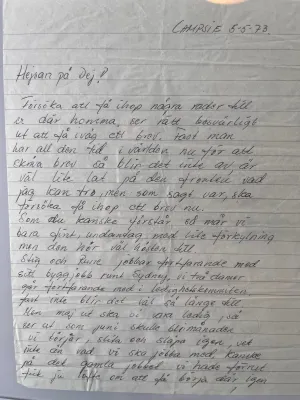 CAMPSIE 5-5-73.
Hejsan på Dej!
Försöka att få ihop några rader till
er där homma, ser rätt besvärligt
ut att få iväg ett brev. Fast man
har all den tid i världen nu för att
skriva brev så blir det inte av, är
väl lite lat på den fronten vad
jag kan tro, men som sagt var, ska
försöka få ihop ett brev nu.
Som du kanske förstår så mår vi
bara fint, undantag med lite förkylning
men den hör väl hösten till.
Stig och Rune jobbar fortfarande med
sitt byggjobb runt Sydney, vi
går fortfarande med i ledighetskommitten
fast inte blir det väl så länge till.
Men maj ut ska vi vara lediga, så
ser ut som juni skulle bli månaden
vi börjar, slita och släpa igen, vet
inte än vad vi ska jobba med, kanske
på det gamla jobbet vi hade förrut
fick ju löfte om att få börja där igen